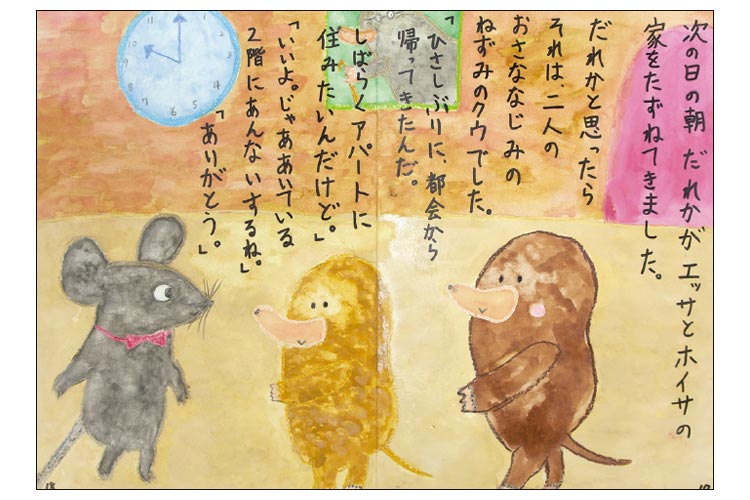 次の日の朝だれかがエッサとホイサの
家をたずねてきました。
だれかと思ったら
それは、二人の
おさななじみの
ねずみのクウでした。
「ひさしぶりに、都会から
帰ってきたんだ。
しばらくアパートに
住みたいんだけど。」
「いいよ。じゃああいている
2階にあんないするね。」
「ありがとう。」
12
1
2
3
4
5
6
7
8
9
10